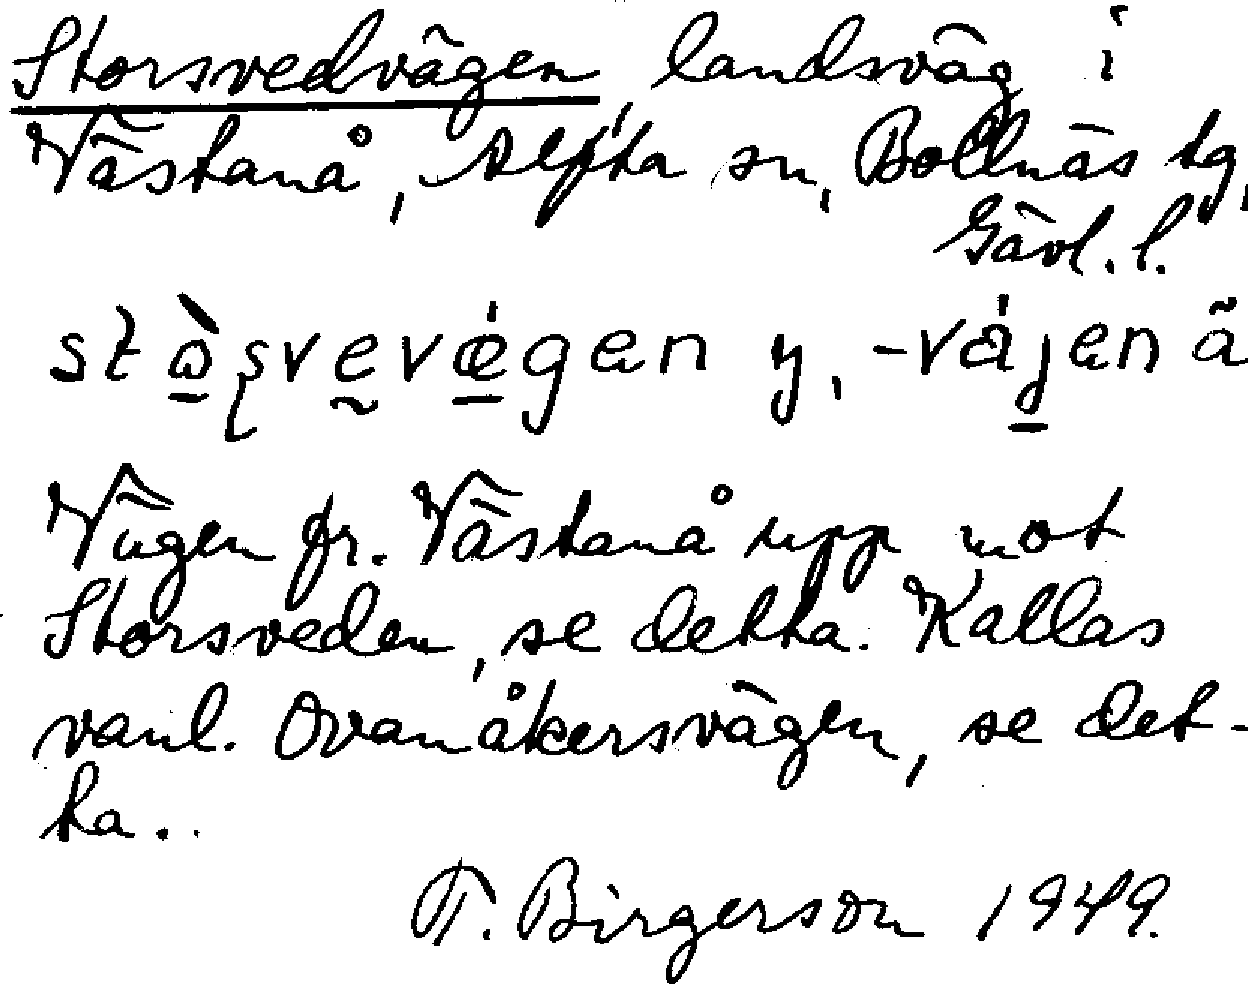 Storsvedvägen, landsväg i
Västanå, Alfta sn, Bollnäs tg,
Gävl. l.
Vägen fr. Västanå upp mot
Storsveden, se detta. Kallas
vanl. Ovanåkersvägen, se det-
ta..
T. Birgerson 1949.